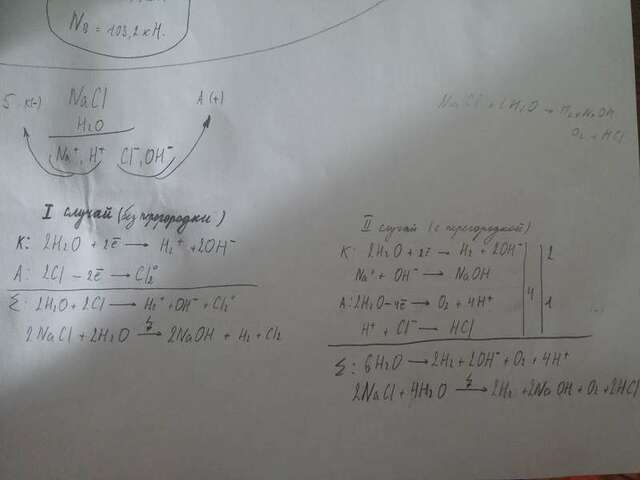 N₈ = 103,2 кН.
5. К(-) NaCl A (+)
H₂O
Na⁺, H⁺ Cl⁻, OH⁻
NaCl + H₂O → H₂ + NaOH
O₂ + HCl
I случай (без перегородки)
К: 2H₂O + 2ē → H₂⁺ + 2OH⁻
А: 2Cl – 2ē → Cl₂⁰
Σ: 2H₂O + 2Cl → H₂⁺ + OH⁻ + Cl₂⁰
2NaCl + 2H₂O → 2NaOH + H₂ + Cl₂
II случай (с перегородкой)
К: 2H₂O + 2ē → H₂ + 2OH⁻ 2
Na⁺ + OH⁻ → NaOH
4
А: 2H₂O – 4ē → O₂ + 4H⁺ 1
H⁺ + Cl⁻ → HCl
Σ: 6H₂O → 2H₂ + 2OH⁻ + O₂ + 4H⁺
2NaCl + 4H₂O → 2H₂ + 2NaOH + O₂ + 2HCl